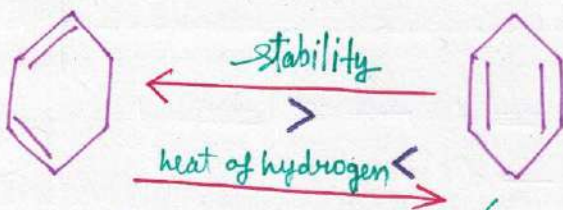 stability
>
heat of hydrogen <